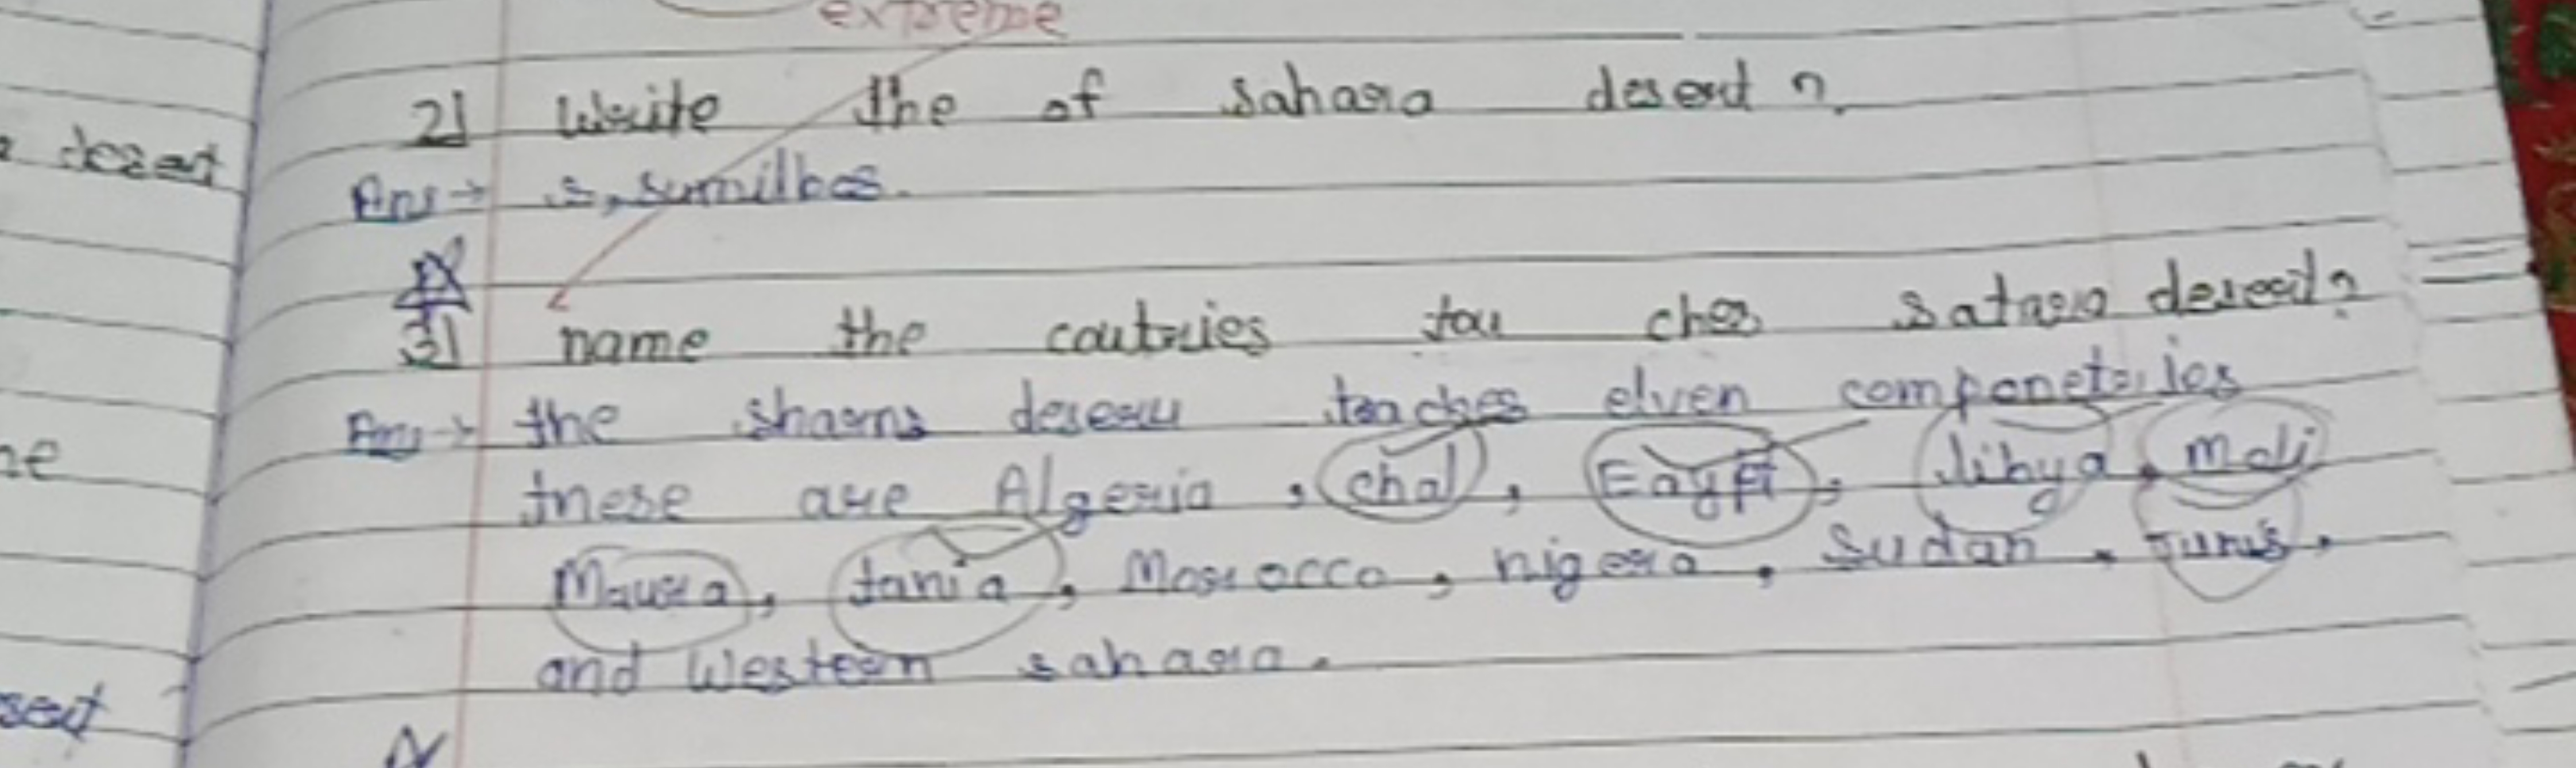 extreme
2] Write the of sahara desert ?
desert
Ans → s,sumilbes.
3] name the coutries tou ches satara desert?
Ans → the sharns deseru toaches elven
ne
tnese are Algeria , chal , Eaypt , libya , Mali
Maura , tania , Morrocco , nigera , Sudan , Tunis .
and Western sahara .
sert